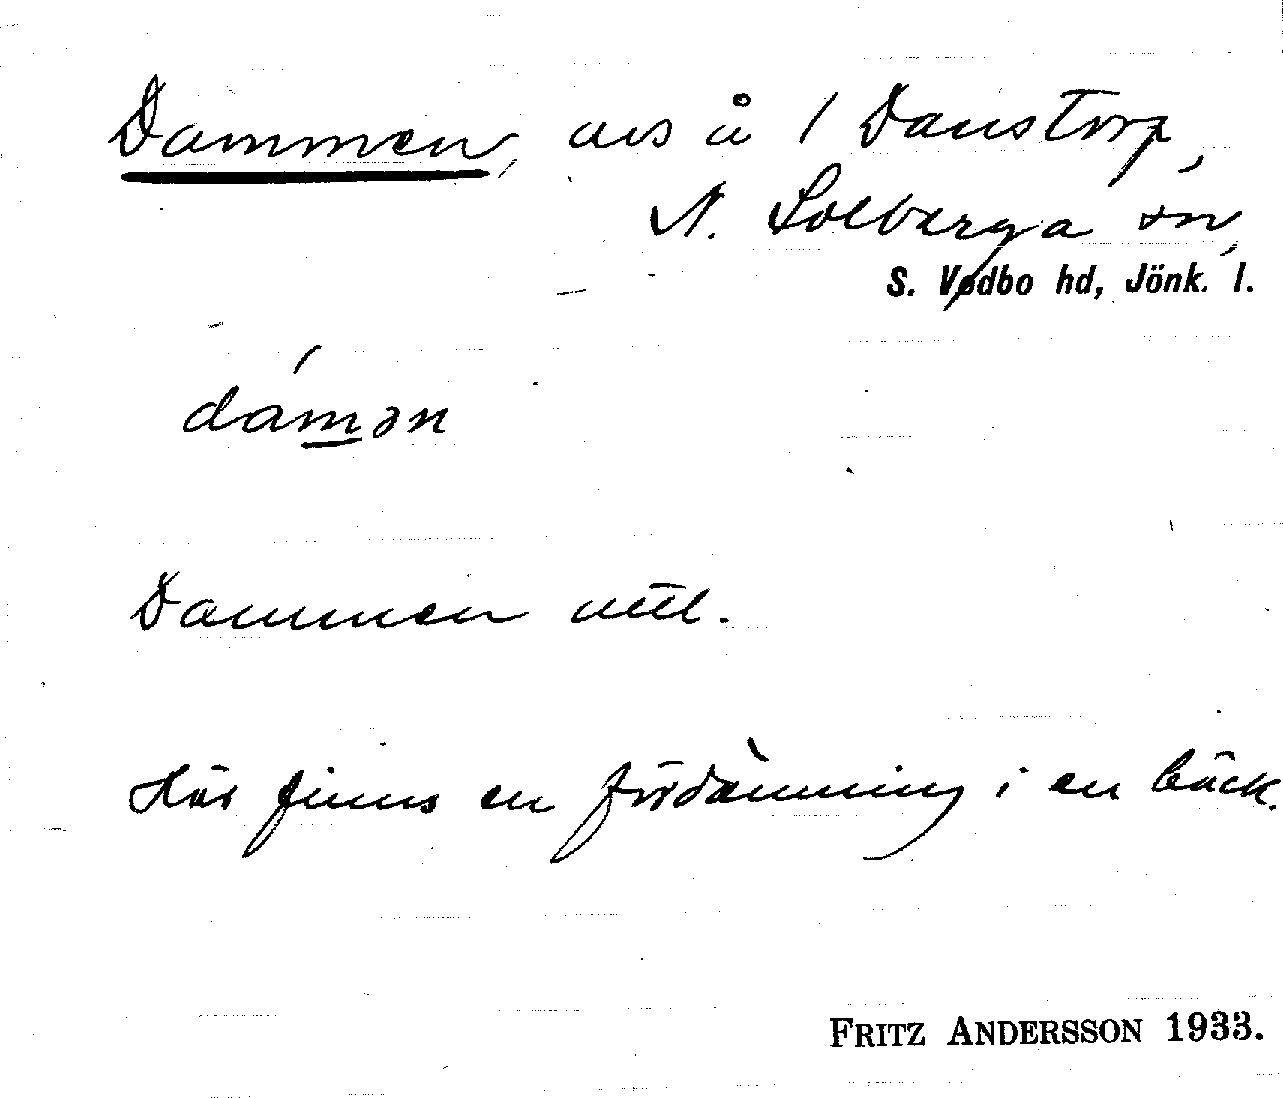 Dammen, avs å / Danstorp,
N. Solberga sn,
S. Vedbo hd, Jönk. l.
damən
Dammen uttl.
Här finns en fördämning i en bäck.
FRITZ ANDERSSON 1933.